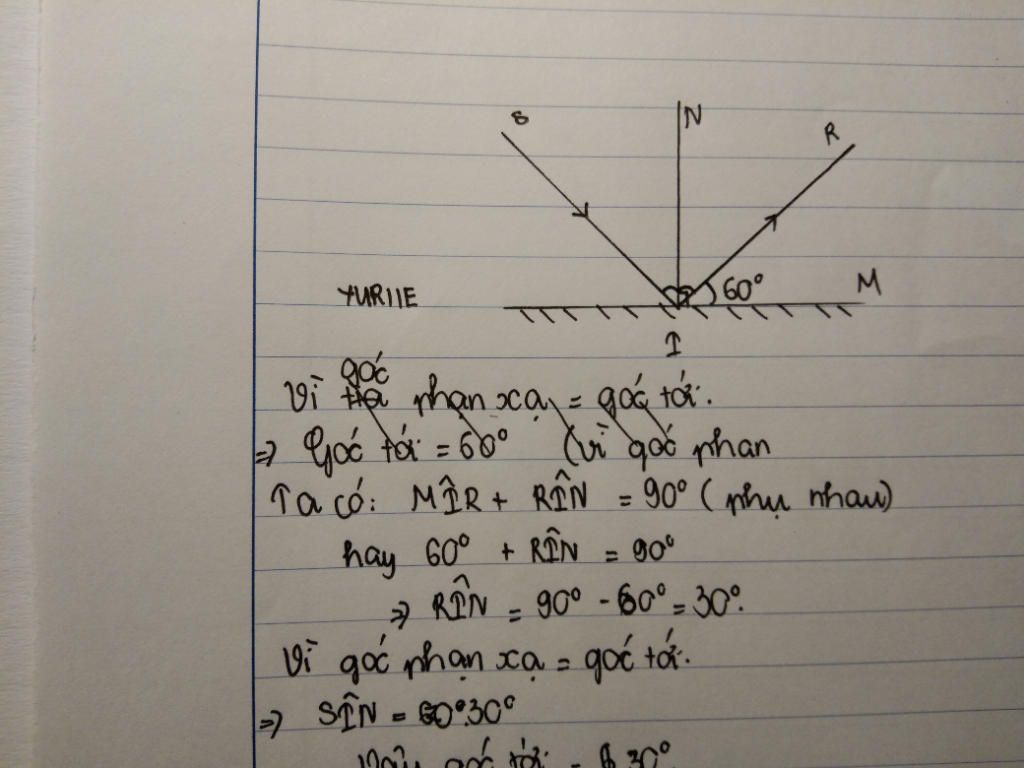 S
N
R
YURIIE
60°
M
I
góc
Vì phản xạ = góc tới.
=> Góc tới = 60° (vì góc phản
Ta có: MÎR + RÎN = 90° (phụ nhau)
hay 60° + RÎN = 90°
=> RÎN = 90° - 60° = 30°.
Vì góc phản xạ = góc tới.
=> SÎN = 30°
Vậy góc tới = 30°